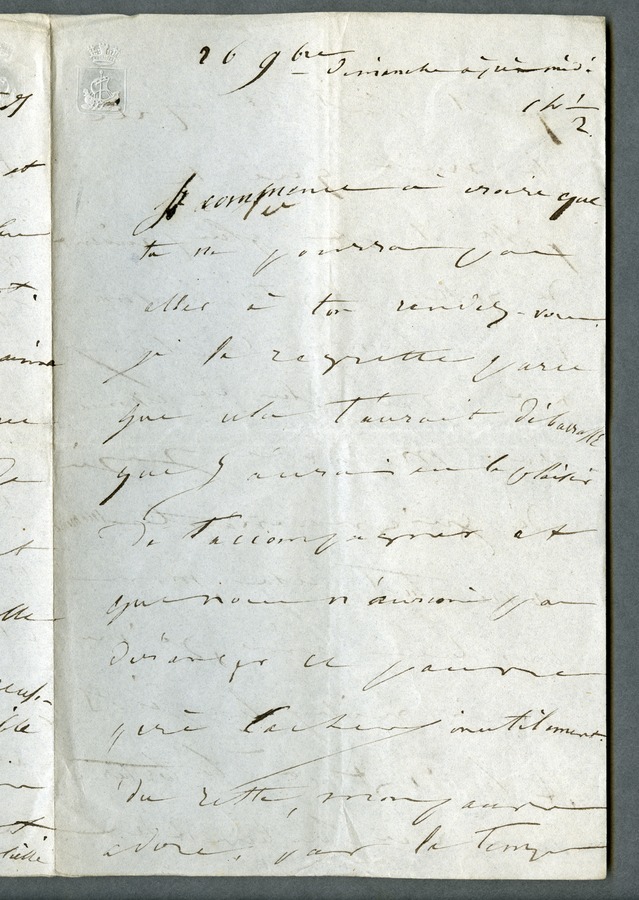 26 9bre Dimanche après midi
1h 1/2.
Je commence à croire que
tu ne pourras pas
aller à ton rendez-vous.
je le regrette parce
que cela t'aurait débarrassé
que j'aurais eu le plaisir
de t'accompagner et
que nous n'aurions pas
dérangé ce pauvre
père inutilement.
du reste, mon pauvre
adoré, par le temps